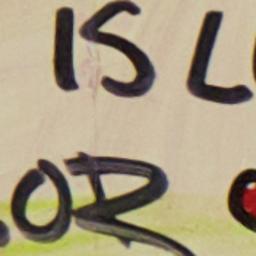 IS L
OR